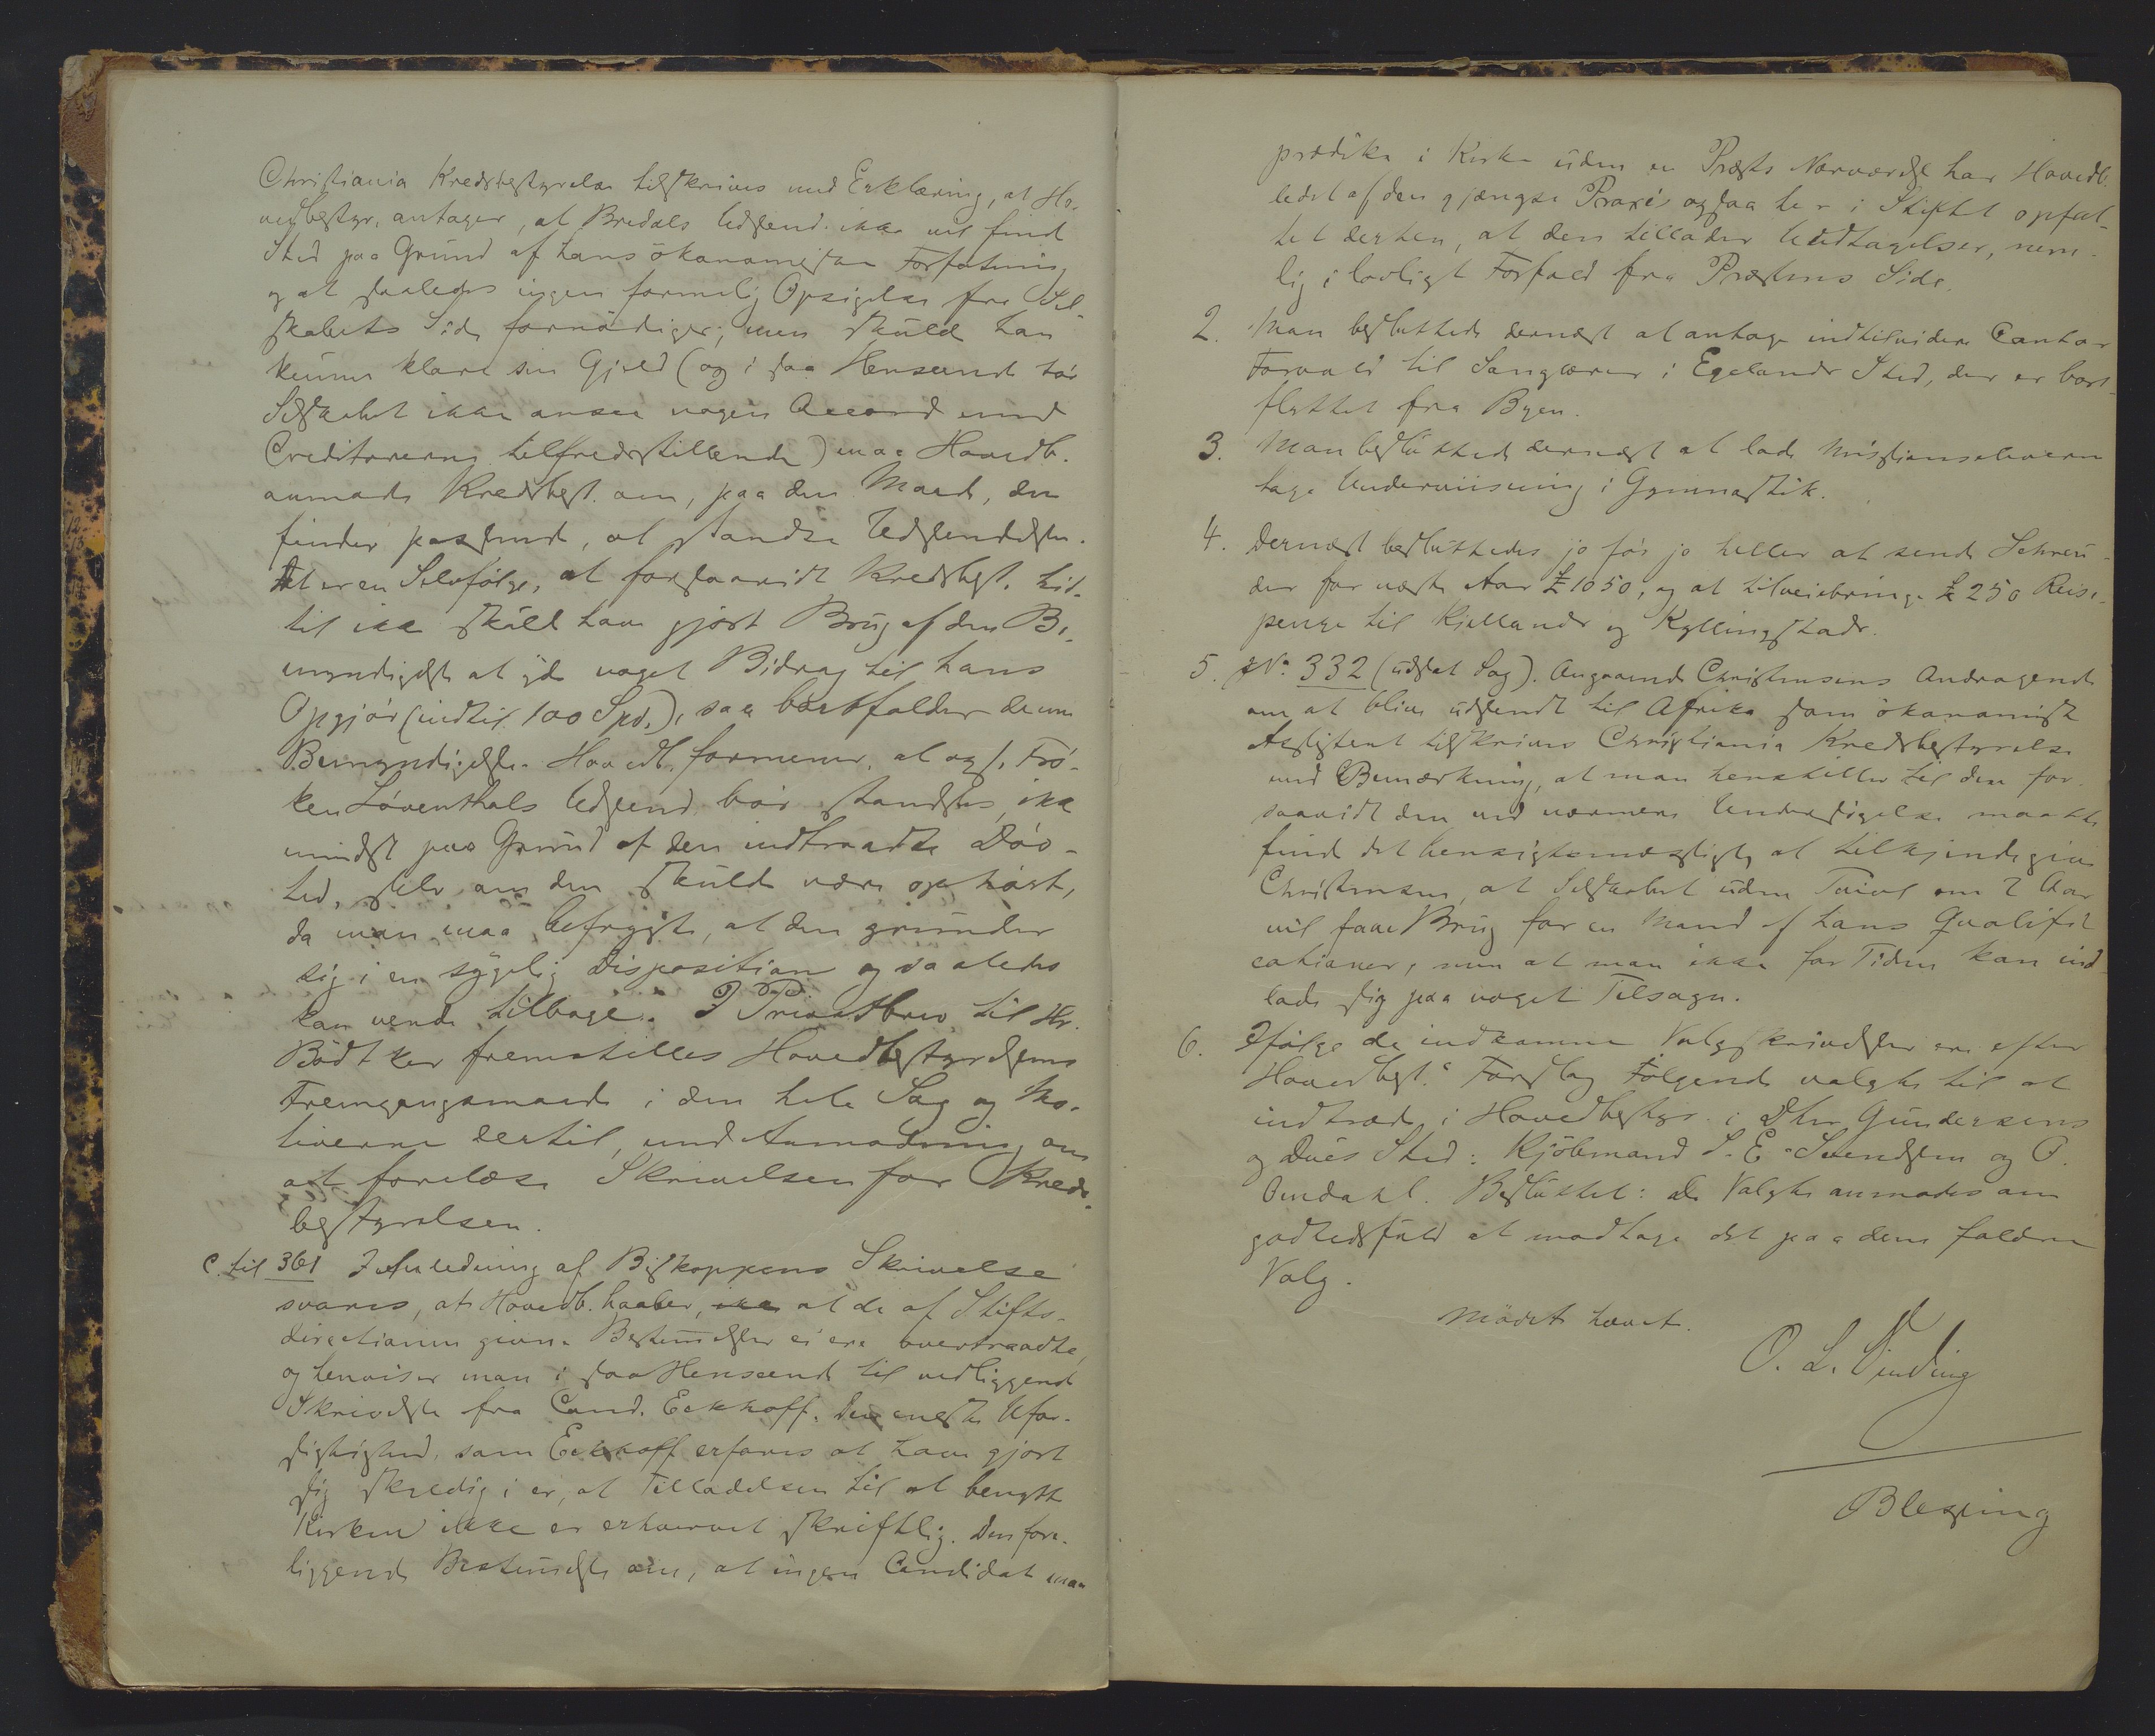 Christiania Kredsbestyrelse tilskrives med Erklæring, at Ho-
vedbestyr. antager, at Bredals Udsend. ikke vil finde
Sted paa Grund af hans ökonomiske Forfatning
og at saaledes ingen formelig Opsigelse fra Sel-
skabets Side fornödiges; men skulde han
kunne klare sin Gjeld (og i saa Henseende tör
Selskabet ikke ansee nogen Accord med
Creditorerne tilfredsstillende) maa Hovedb.
anmode Kredsbest. om, paa den Maade, den
finder passende, at standse Udsendelsen.
Det er en Selvfölge, at forsaavidt Kredsbest. hid-
til ikke skulde have gjort Brug af den Be-
myndigelse at yde noget Bidrag til hans
Opgjör (indtil 100 Spd.), saa bortfalder denne
Bemyndigelse. Hovedb. formener, at ogs. Frö-
ken Löventhals Udsend. bör standses, ikke
mindst paa Grund af den indtraadte Döv-
hed, selv om den skulde være ophört,
da man maa befrygte, at den grunder
sig i en sygelig Disposition og saaledes
kan vende tilbage. I Privatbrev til Hr.
Bödtker fremstilles Hovedbestyrelsens
Fremgangsmaade i den hele Sag og Mo-
tiverne dertil, med Anmodning om
at forelæse Skrivelsen for Kreds-
bestyrelsen.
C. til 361 I Anledning af Biskoppens Skrivelse
svares, at Hovedb. haaber, at de af Stifts-
directionen givne Bestemmelser ei ere overtraadte,
og henviser man i saa Henseende til vedliggende
Skrivelse fra Cand. Eckhoff. Den eneste Ufor-
sigtighed, som Eckhoff erfares at have gjort
sig skyldig i er, at Tilladelsen til at benytte
Kirken ikke er erhvervet skriftlig. Den fore-
liggende Bestemmelse om, at ingen Candidat maa
prædike i Kirke uden en Præsts Nærværelse har Hovedb.
ledet af den gjængse Praxis ogsaa her i Stiftet opfat-
tet derhen, at den tillader Undtagelser, nem-
lig i lovligt Forfald fra Præstens Side.
2. Man besluttede dernæst at antage indtilvidere Cantor
Forvald til Sanglærer i Egelands Sted, der er bort-
flyttet fra Byen.
3. Man besluttede dernæst at lade Missionseleverne
tage Underviisning i Gymnastik.
4. Dernæst besluttedes jo för jo heller at sende Schreu-
der for næste Aar £ 1050, og at tilveiebringe £ 250 Reise-
penge til Kiellands og Kyllingstads.
5. No. 332 (udsat Sag). Angaaende Christensens Andragende
om at blive udsendt til Afrika som ökonomisk
Assistent tilskrives Christiania Kredsbestyrelse
med Bemærkning, at man henstiller til den for-
saavidt den ved nærmere Undersögelse maatte
finde det hensigtsmæssigt, at tilkjendegive
Christensen, at Selskabet uden Tvivl om 2 Aar
vil faae Brug for en Mand af hans Qualifi-
cationer, men at man ikke for Tiden kan ind-
lade sig paa noget Tilsagn.
6. Ifölge de indkomne Valgskrivelser ere efter
Hovedbest.s Forslag Fölgende valgte til at
indtræde i Hovedbestyr. i DHrr Gundersens
og Dues Sted: Kjöbmand S. E. Svendsen og O.
Omdahl. Besluttet: De Valgte anmodes om
godhedsfuld at modtage det paa dem faldne
Valg.
Mödet hævet.
O. L. Vinding
Blessing